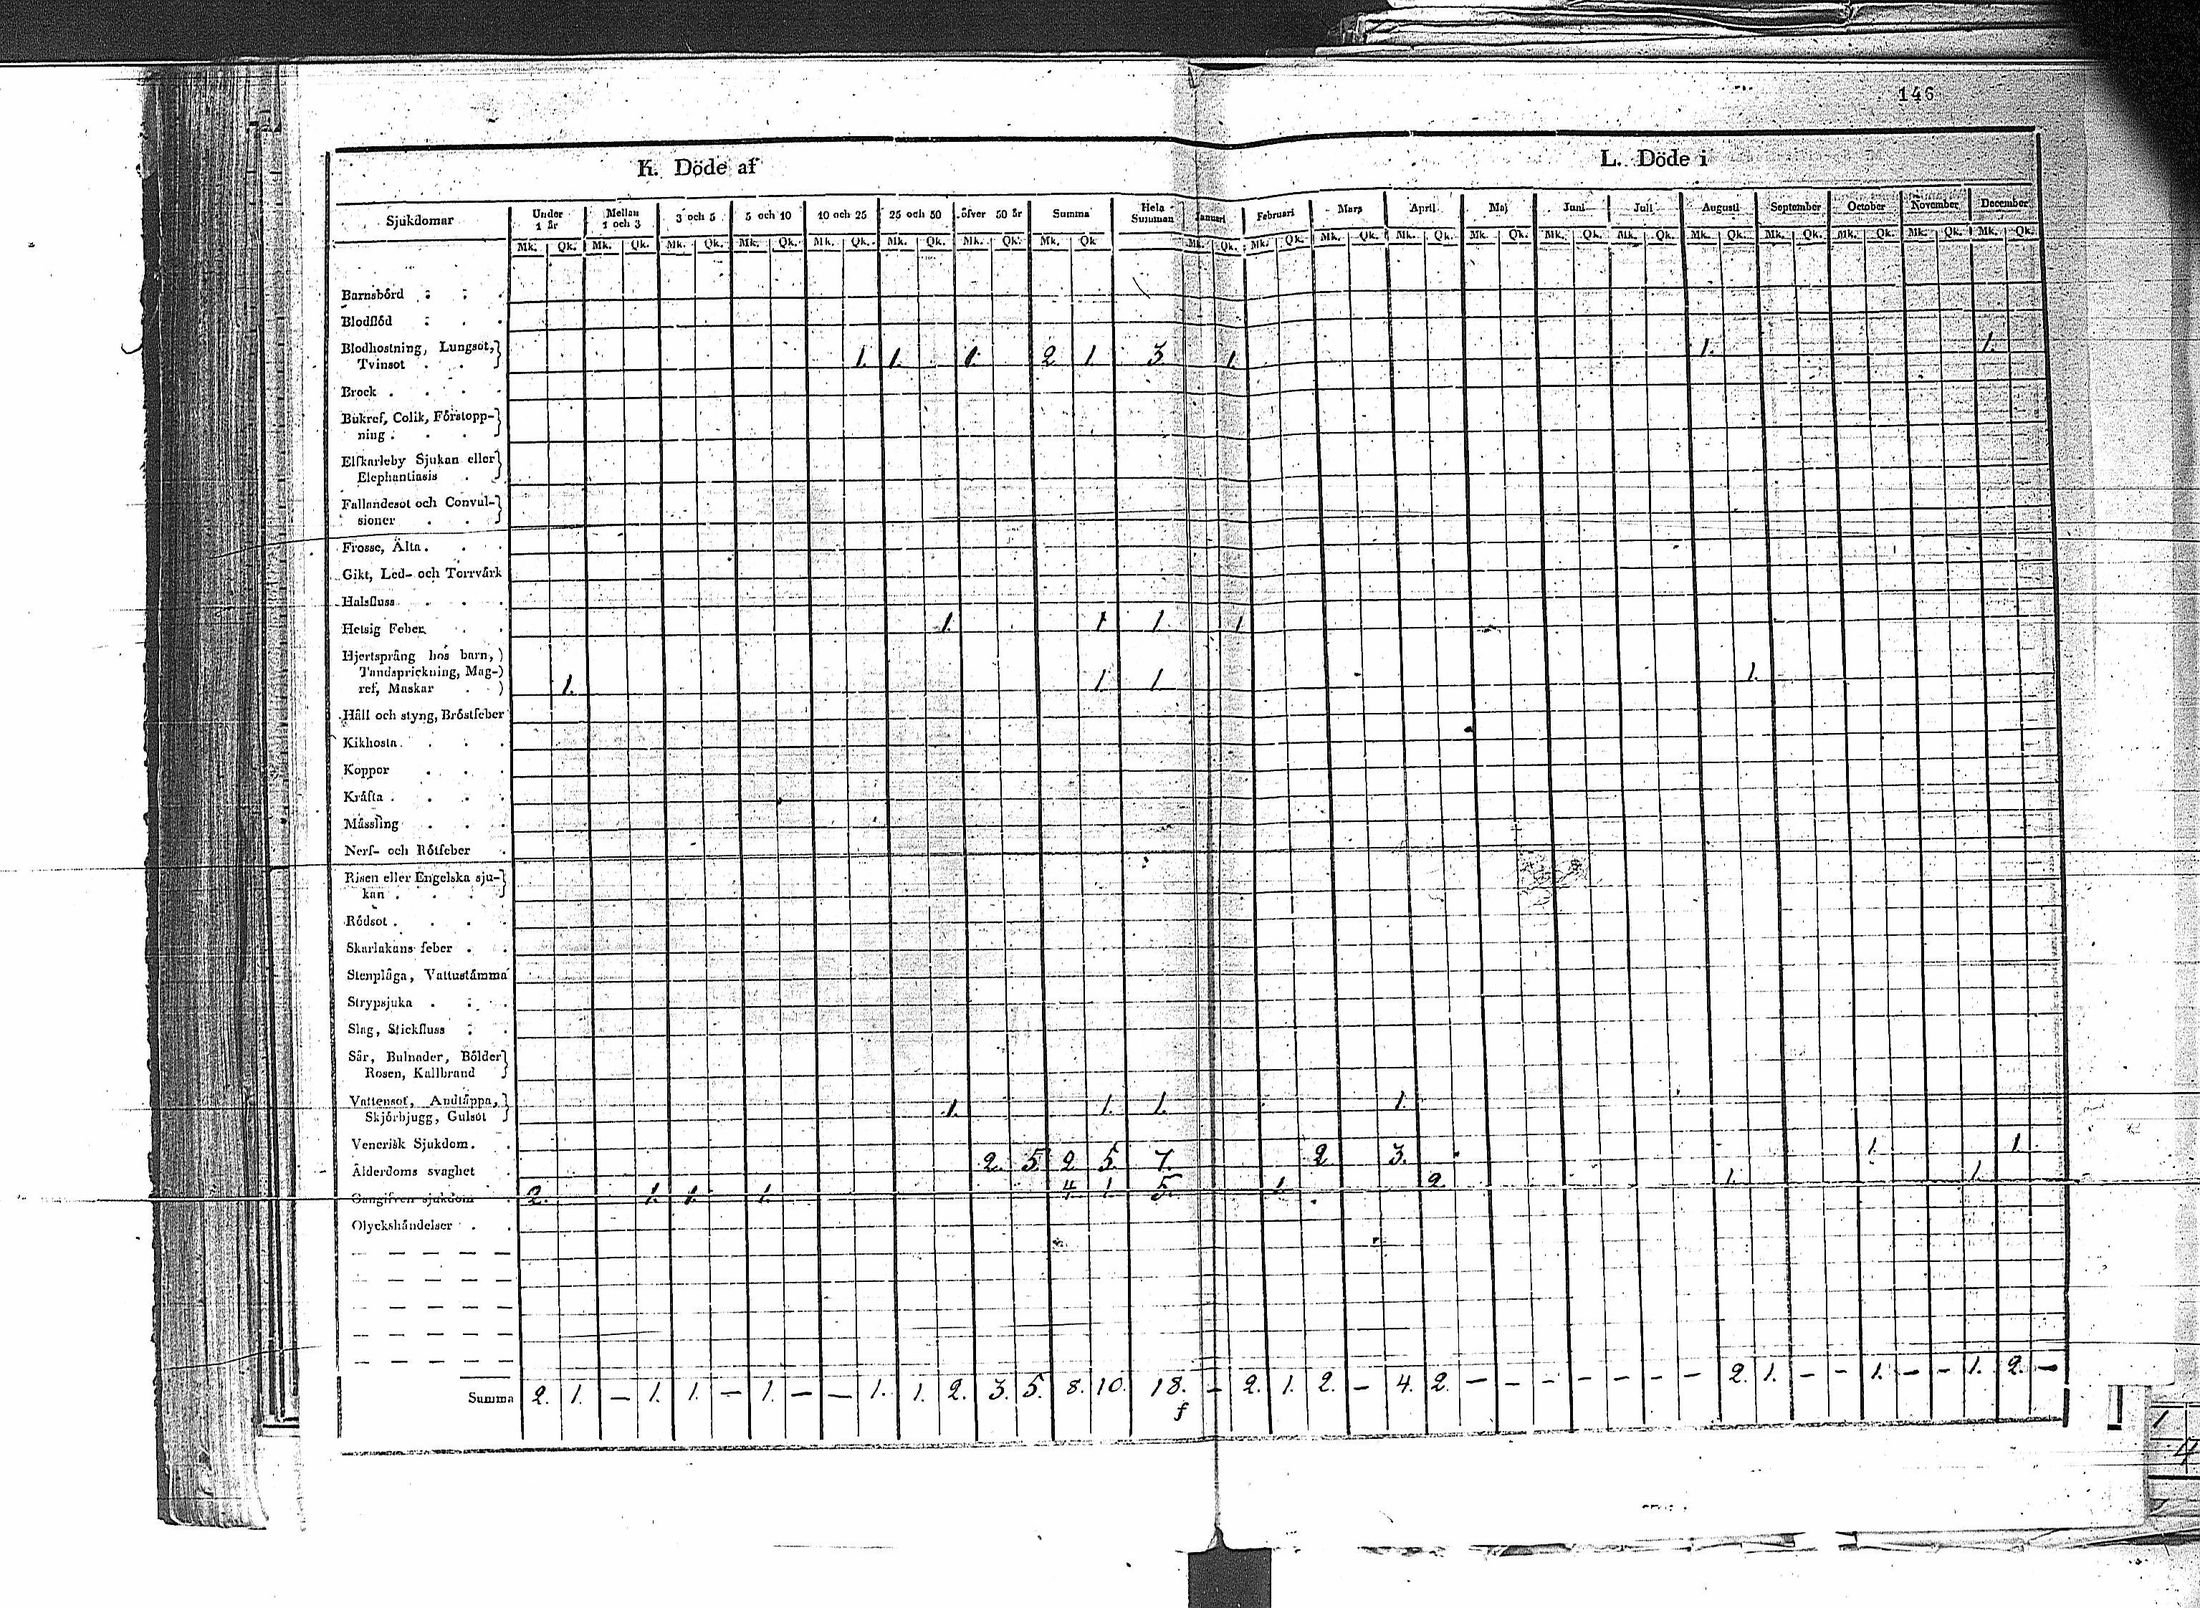 146
K. Döde af
L. Döde i
Sjukdomar Under 1 år Mellan 1 och 3 3 och 5 5 och 10 10 och 25 25 och 50 öfver 50 år Summa Hela Summan Januari Februari Mars April Maj Juni Juli Augusti September October November December
Mk. Qk. Mk. Qk. Mk. Qk. Mk. Qk. Mk. Qk. Mk. Qk. Mk. Qk. Mk. Qk Mk. Qk. Mk. Qk. Mk. Qk. Mk. Qk. Mk. Qk. Mk. Qk. Mk. Qk. Mk. Qk. Mk. Qk. Mk. Qk. Mk. Qk. Mk. Qk.
Barnsbörd
Blodflöd
Blodhostning, Lungsot,
Tvinsot 1. 1. 1. 2 1. 3 1. 1. 1.
Brock
Bukref, Colik, Förstopp-
ning
Elfkarleby Sjukan eller
Elephantiasis
Fallandesot och Convul-
sioner
Frosse, Älta
Gikt, Led- och Torrvärk
Halsfluss
Hetsig Feber 1. 1 1. 1
Hjertsprång hos barn,
Tandsprickning, Mag-
ref, Maskar 1. 1. 1. 1.
Håll och styng, Bröstfeber
Kikhosta
Koppor
Kräfta
Mässling
Nerf- och Rötfeber
Risen eller Engelska sju-
kan
Rödsot
Skarlakans feber
Stenplåga, Vattustämma
Strypsjuka
Slag, Stickfluss
Sår, Bulnader, Bölder
Rosen, Kallbrand
Vattensot, Andtäppa,
Skjörbjugg, Gulsot 1. 1. 1. 1.
Venerisk Sjukdom
Ålderdoms svaghet 2. 5 2 5. 7. 2 3. 1. 1.
Oangifven sjukdom 2. 1. 1. 1. 4. 1. 5. 1. 2. 1. 1.
Olyckshändelser
Summa 2. 1. — 1. 1. — 1. — — 1. 1. 2. 3. 5. 8. 10. 18. — 2. 1. 2. — 4. 2. — — — — — — — 2. 1. — — 1. — — 1. 2. —